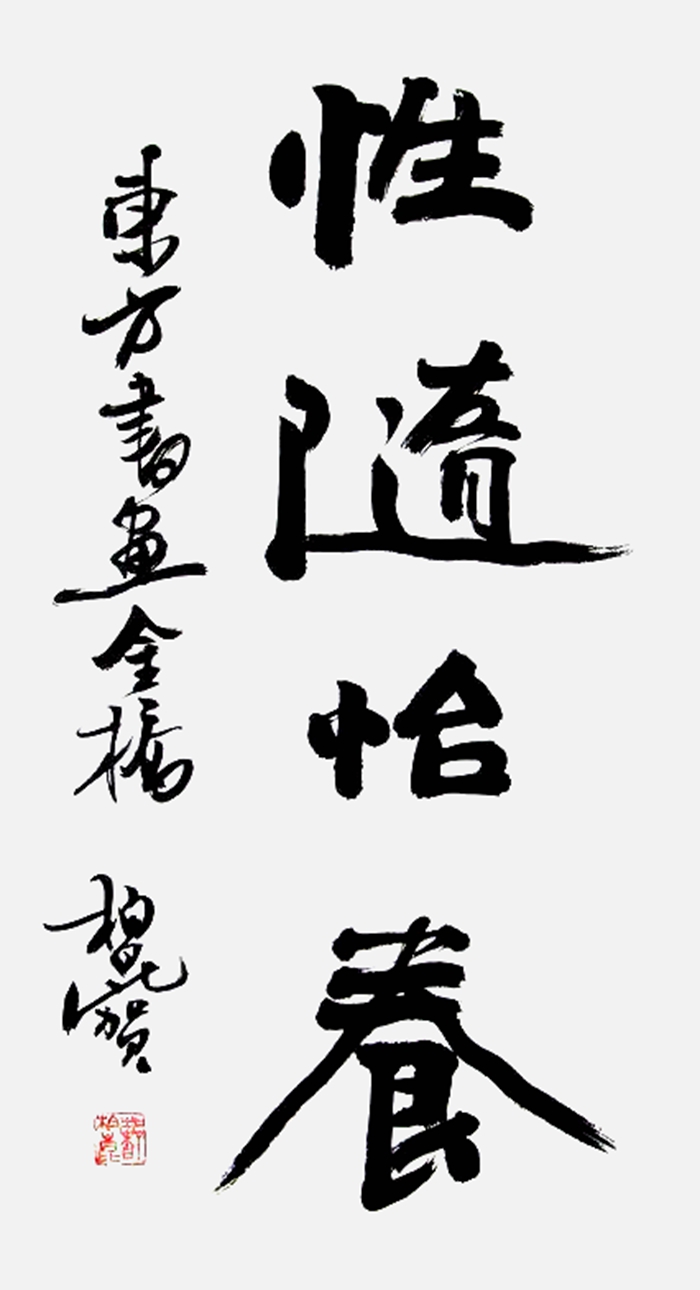 性隨怡養
東方書畫金橋